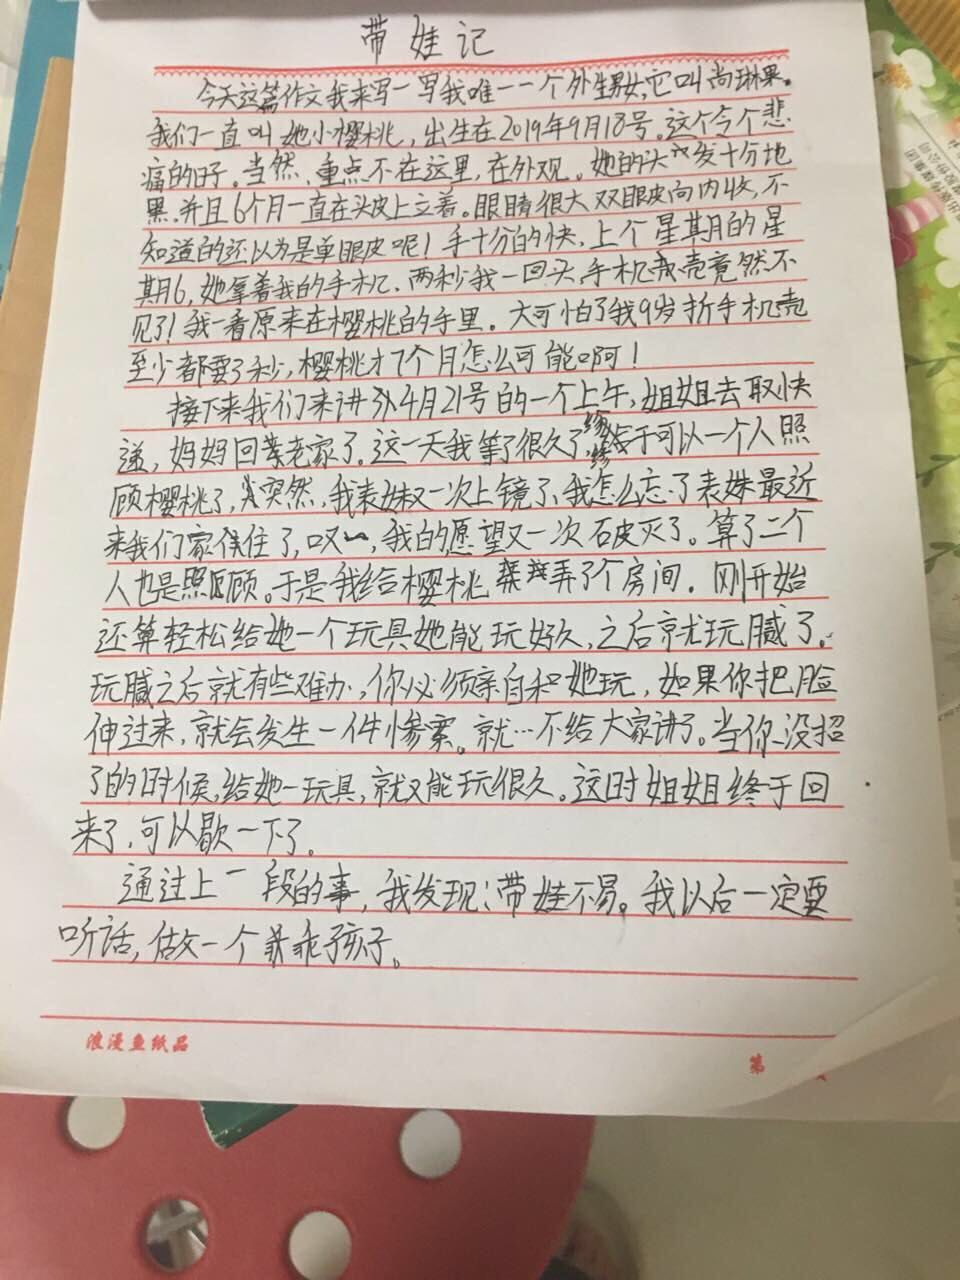 带娃记
今天这篇作文我来写一写我唯一一个外生男女,它叫尚琳果。
我们一直叫她小樱桃,出生在2019年9月18号。这个令个悲
痛的日子。当然,重点不在这里,在外观。她的头发十分地
黑,并且6个月一直在头皮上立着。眼睛很大双眼皮向内收,不
知道的还以为是单眼皮呢!手十分的快,上个星期的星
期6,她拿着我的手机、两秒我一回头,手机壳竟然不
见了!我一看原来在樱桃的手里。大可怕了我9岁折手机壳
至少都要3秒,樱桃才7个月怎么可能啊!
接下来我们来讲4月21号的一个上午,姐姐去取快
递,妈妈回老家了。这一天我等了很久了,终于可以一个人照
顾樱桃了,突然,我表妹又一次上镜了、我怎么忘了表妹最近
来我们家住了,叹~,我的愿望又一次破灭了。算了二个
人也是照顾。于是我给樱桃弄了个房间。刚开始
还算轻松给她一个玩具她能玩好久,之后就玩腻了。
玩腻之后就有些难办,你必须亲自和她玩,如果你把脸
伸过来,就会发生一件惨案。就…不给大家讲了。当你没招
了的时候,给她一玩具,就又能玩很久。这时姐姐终于回
来了,可以歇一下了。
通过上一段的事,我发现:带娃不易。我以后一定要
听话,做一个乖孩子。
浪漫鱼纸品
第